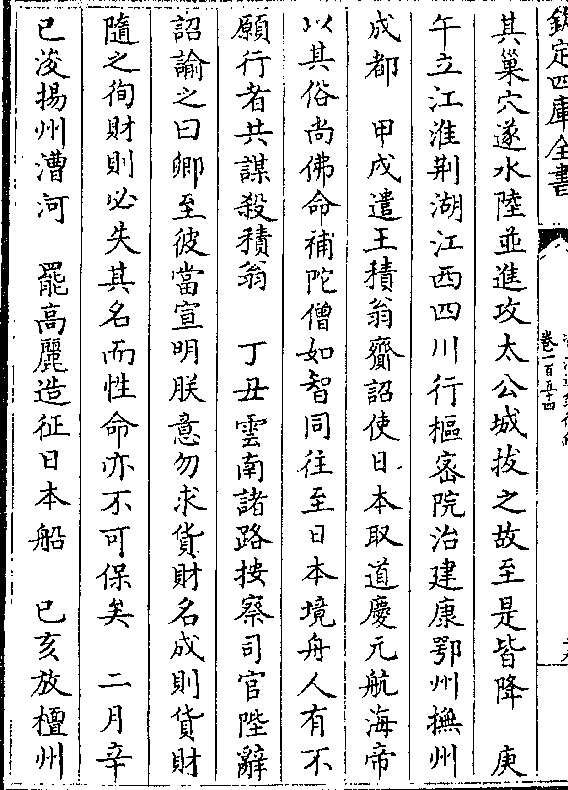 欽定四庫全書
卷一百五十四
其巢穴遂水陸並進攻太公城拔之故至是皆降　庚
午立江淮荆湖江西四川行樞密院治建康鄂州撫州
成都　甲戌遣王積翁齎詔使日本取道慶元航海帝
以其俗尚佛命補陀僧如智同往至日本境舟人有不
願行者共謀殺積翁　丁丑雲南諸路按察司官陛辭
詔諭之曰卿至彼當宣明朕意勿求貨財名成則貨財
隨之徇財則必失其名而性命亦不可保矣　二月辛
已浚揚州漕河　罷高麗造征日本船　已亥放檀州